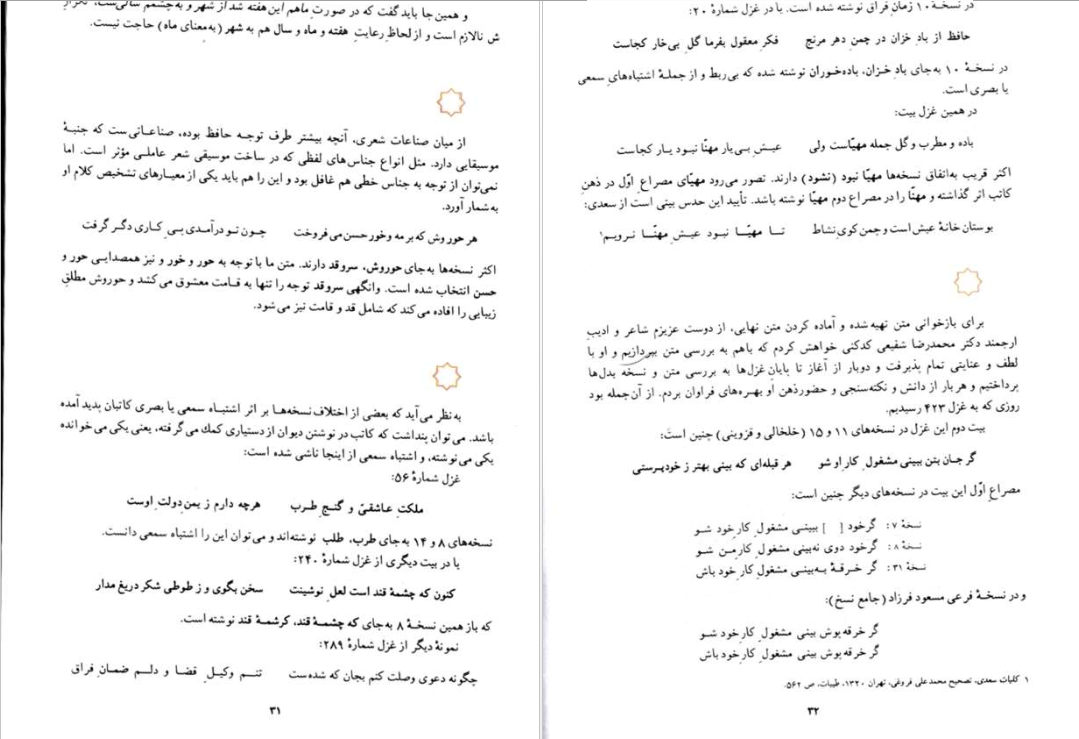 و همین جا باید گفت که در صورتِ ماهم این هفته شد از شهر و به چشمم سالی‌ست، تکرارِ
ش نالازم است و از لحاظ رعایتِ هفته و ماه و سال هم به شهر (به‌معنای ماه) حاجت نیست.
از میان صناعات شعری، آنچه بیشتر طرف توجـه حافظ بوده، صناعـاتی‌ست که جنبـهٔ
موسیقایی دارد. مثل انواع جناس‌های لفظی که در ساخت موسیقی شعر عاملـی مؤثر است. اما
نمی‌توان از توجه به جناس خطی هم غافل بود و این را هم باید یکی از معیـارهای تشخیص کلام او
به‌شمار آورد.
هر حوروش که بر مه و خور حسن می‌فروخت چـون تـو درآمـدی پـی کاری دگـر گرفت
اکثر نسخه‌ها به‌جای حوروش، سروقد دارند. متن ما با توجه به حور و خور و نیز همصدایـی حور و
حسن انتخاب شده است. وانگهی سروقد توجه را تنها به قـامت معشوق می‌کشد و حوروش مطلق
زیبایی را افاده می‌کند که شامل قد و قامت نیز می‌شود.
به‌نظر می‌آید که بعضی از اختلاف نسخه‌هـا بر اثر اشتبـاه سمعی یا بصری کاتبان پدیـد آمده
باشد. می‌توان پنداشت که کاتب در نوشتن دیوان از دستیاری کمك می‌گرفته، یعنی یکی می‌خوانده
یکی می‌نوشته، و اشتباه سمعی از اینجا ناشی شده است:
غزل شمارهٔ ۵۶:
ملکتِ عـاشقـی و گنـجِ طـرب هرچه دارم ز یمن دولتِ اوست
نسخه‌های ۸ و ۱۴ به‌جای طرب، طلب نوشته‌اند و می‌توان این را اشتباه سمعی دانست.
یا در بیت دیگری از غزل شمارهٔ ۲۴۰:
کنون که چشمهٔ قند است لعلِ نوشینت سخن بگوی و ز طوطی شکر دریغ مدار
که باز همین نسخـهٔ ۸ به‌جای که چشمـهٔ قند، کرشمـهٔ قند نوشته است.
نمونهٔ دیگر از غزل شمارهٔ ۲۸۹:
چگونه دعویِ وصلت کنم بجان که شده‌ست تنـم وکیـلِ قضـا و دلـم ضمـانِ فراق
۳۱
در نسخـهٔ ۱۰ زمانِ فراق نوشته شده است. یا در غزل شمارهٔ ۲۰:
حافظ از بادِ خزان در چمنِ دهر مرنج فکرِ معقول بفرما گلِ بی‌خار کجاست
در نسخـهٔ ۱۰ به‌جای بادِ خزان، باده‌خوران نوشته شده که بی‌ربط و از جملـهٔ اشتباه‌هایِ سمعی
یا بصری است.
در همین غزل بیت:
باده و مطرب و گل جمله مهیّاست ولی عیـشِ بـی‌یار مهنّا نبـود یـار کجاست
اکثر قریب به‌اتفاق نسخه‌ها مهیّا نبود (نشود) دارند. تصور می‌رود مهیّای مصراعِ اوّل در ذهنِ
کاتب اثر گذاشته و مهنّا را در مصراع دوم مهیّا نوشته باشد. تأیید این حدس بیتی است از سعدی:
بوستان خانهٔ عیش است و چمن کویِ نشاط تـا مهیّـا نبـود عیـشِ مهنّـا نـرویـم¹
برای بازخوانی متن تهیه‌شده و آماده کردن متن نهایی، از دوست عزیزم شاعر و ادیبِ
ارجمند دکتر محمدرضا شفیعی کدکنی خواهش کردم که باهم به بررسی متن بپردازیم و او با
لطف و عنایتی تمام پذیرفت و دوبار از آغاز تا پایانِ غزل‌ها به بررسی متن و نسخه بدل‌ها
پرداختیم و هر بار از دانش و نکته‌سنجی و حضورذهن او بهـره‌های فراوان بردم. از آن جمله بود
روزی که به غزل ۴۲۳ رسیدیم.
بیت دوم این غزل در نسخه‌های ۱۱ و ۱۵ (خلخالی و قزوینی) چنین است:
گر جـان بتن ببینی مشغولِ کارِ او شو هر قبله‌ای که بینی بهتر ز خودپـرستی
مصراعِ اوّل این بیت در نسخه‌های دیگر چنین است:
نسخهٔ ۷: گرخود [ ] ببینـی مشغولِ کارِ خود شـو
نسخهٔ ۸: گرخود دوی نه‌بینی مشغولِ کارِ مـن شو
نسخهٔ ۳۱: گر خـرقـهٔ بـه‌بینـی مشغولِ کارِ خود باش
و در نسخـهٔ فرعی مسعود فرزاد (جامع نسخ):
گر خرقه‌پوش بینی مشغولِ کارِ خود شـو
گر خرقه‌پوش بینی مشغولِ کارِ خود باش
۱ کلیات سعدی، تصحیح محمدعلی فروغی، تهران ۱۳۲۰، طیبات، ص ۵۶۲.
۳۲